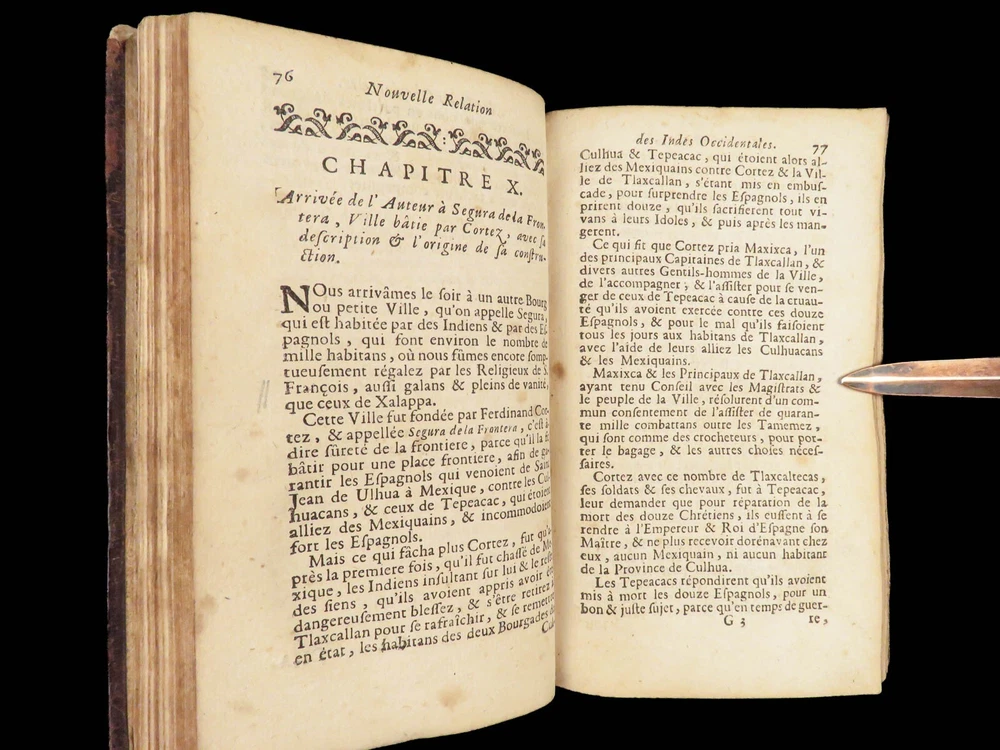 76
Nouvelle Relation
CHAPITRE X.
Arrivée de l'Auteur à Segura de la Fron-
tera, Ville bâtie par Cortez, avec sa
description & l'origine de sa constru-
ction.
NOus arrivâmes le soir à un autre Bourg
ou petite Ville, qu'on appelle Segura,
qui est habitée par des Indiens & par des Es-
pagnols, qui font environ le nombre de
mille habitans, où nous fûmes encore somp-
tueusement régalez par les Religieux de S.
François, aussi galans & pleins de vanité,
que ceux de Xalappa.
Cette Ville fut fondée par Ferdinand Cor-
tez, & appellée Segura de la Frontera, c'est à
dire sûreté de la frontiere, parce qu'il la fit
bâtir pour une place frontiere, afin de ga-
rantir les Espagnols qui venoient de Saint
Jean de Ulhua à Mexique, contre les Cul-
huacans, & ceux de Tepeacac, qui étoient
alliez des Mexiquains, & incommodoient
fort les Espagnols.
Mais ce qui fâcha plus Cortez, fut qu'a-
près la premiere fois, qu'il fut chassé de Me-
xique, les Indiens insultant sur lui & le reste
des siens, qu'ils avoient appris avoir été
dangereusement blessez, & s'être retirez à
Tlaxcallan pour se rafraîchir, & se remettre
en état, les habitans des deux Bourgades de
Cul-
des Indes Occidentales.
77
Culhua & Tepeacac, qui étoient alors al-
liez des Mexiquains contre Cortez & la Vil-
le de Tlaxcallan, s'étant mis en embus-
cade, pour surprendre les Espagnols, ils en
prirent douze, qu'ils sacrifierent tout vi-
vans à leurs Idoles, & puis après les man-
gerent.
Ce qui fit que Cortez pria Maxixca, l'un
des principaux Capitaines de Tlaxcallan, &
divers autres Gentils-hommes de la Ville,
de l'accompagner, & l'assister pour se ven-
ger de ceux de Tepeacac à cause de la cruau-
té qu'ils avoient exercée contre ces douze
Espagnols, & pour le mal qu'ils faisoient
tous les jours aux habitans de Tlaxcallan,
avec l'aide de leurs alliez les Culhuacans
& les Mexiquains.
Maxixca & les Principaux de Tlaxcallan,
ayant tenu Conseil avec les Magistrats &
le peuple de la Ville, résolurent d'un com-
mun consentement de l'assister de quaran-
te mille combattans outre les Tamemez,
qui sont comme des crocheteurs, pour por-
ter le bagage, & les autres choses néces-
saires.
Cortez avec ce nombre de Tlaxcaltecas,
ses soldats & ses chevaux, fut à Tepeacac,
leur demander que pour réparation de la
mort des douze Chrétiens, ils eussent à se
rendre à l'Empereur & Roi d'Espagne son
Maître, & ne plus recevoir dorénavant chez
eux, aucun Mexiquain, ni aucun habitant
de la Province de Culhua.
Les Tepeacacs répondirent qu'ils avoient
mis à mort les douze Espagnols, pour un
bon & juste sujet, parce qu'en temps de guer-
G 3 re,